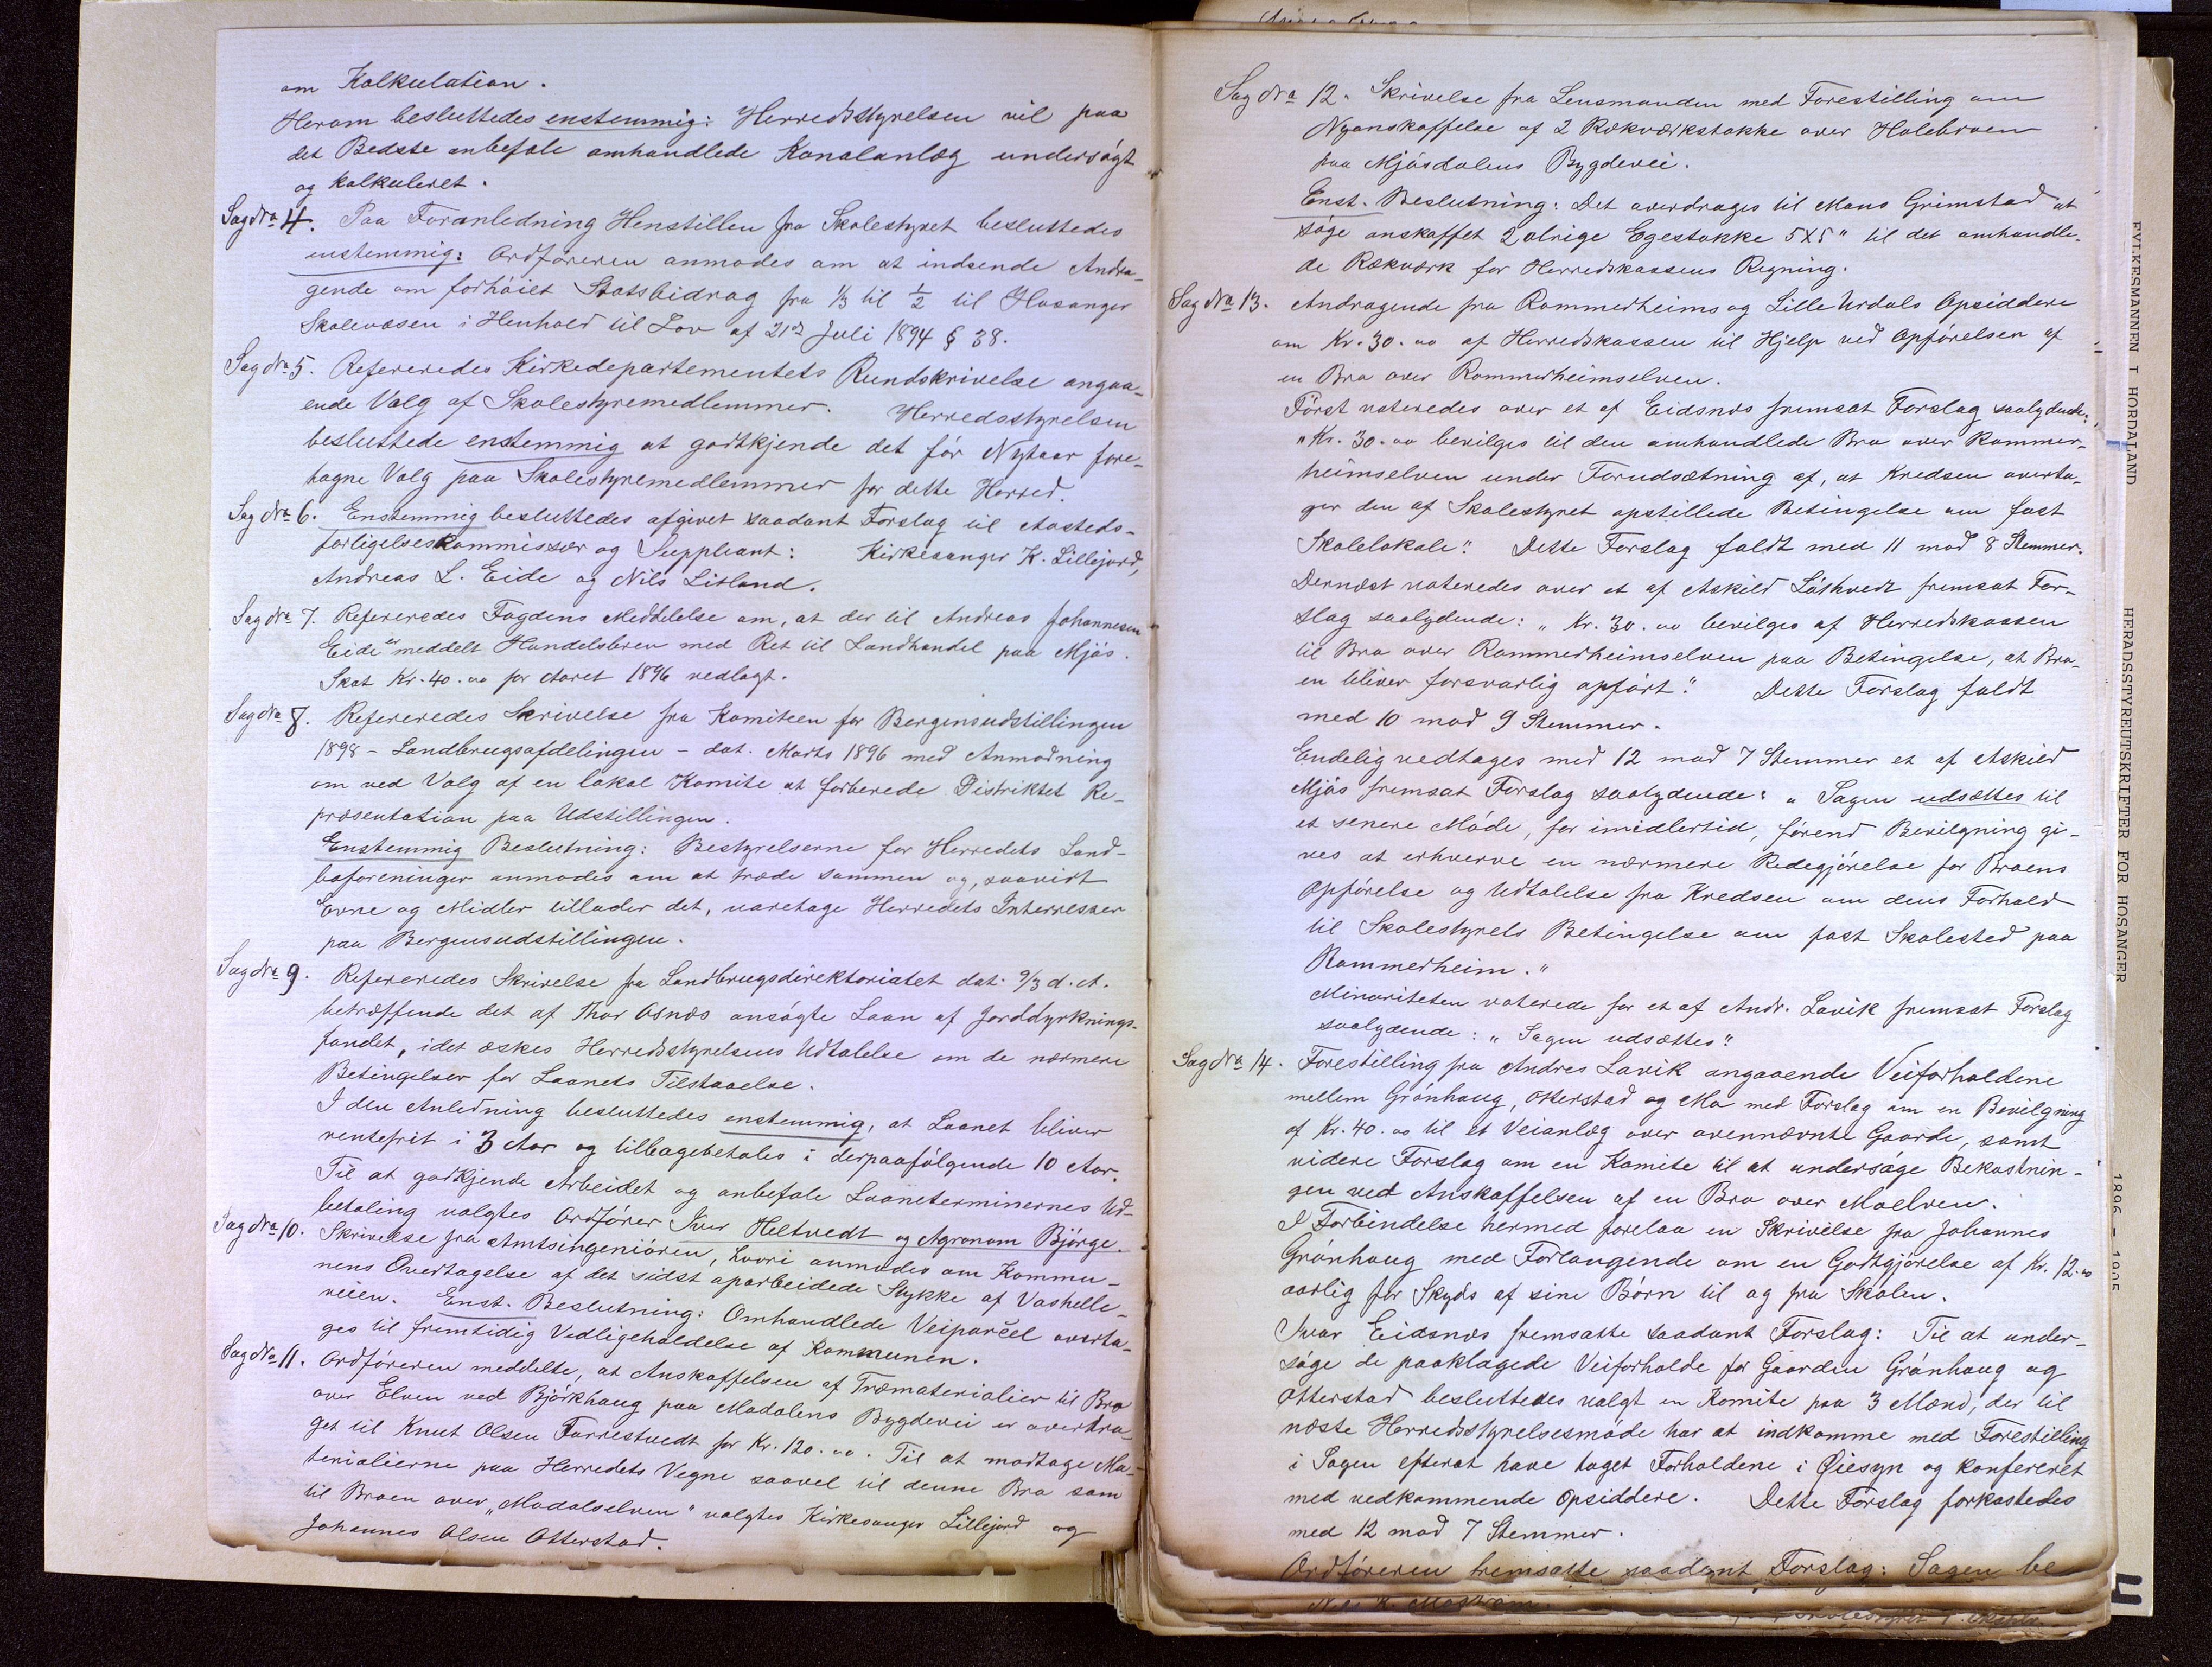 om Kalkulation.
Herom besluttedes enstemmig: Herredsstyrelsen vil paa
det Bedste anbefale omhandlede Kanalanlæg undersøgt
og kalkuleret.
Sag No 4. Paa Foranledning Henstillen fra Skolestyret besluttedes
enstemmig: Ordføreren anmodes om at indsende Andra-
gende om forhøiet Statsbidrag fra 1/3 til 1/2 til Hosanger
Skolevæsen i Henhold til Lov af 21de Juli 1894 § 38.
Sag No 5. Refereredes Kirkedepartementets Rundskrivelse angaa-
ende Valg af Skolestyremedlemmer. Herredsstyrelsen
besluttede enstemmig at godtkjende det før Nytaar fore-
tagne Valg paa Skolestyremedlemmer for dette Herred.
Sag No 6. Enstemmig besluttedes afgivet saadant Forslag til Aasteds-
forligelseskommissær og Suppleant: Kirkesanger K. Lillejord,
Andreas L. Eide og Nils Litland.
Sag No 7. Refereredes Fogdens Meddelelse om, at der til Andreas Johannesen
Eide er meddelt Handelsbrev med Ret til Landhandel paa Mjøs.
Skat Kr. 40.00 for Aaret 1896 vedlagt.
Sag No 8. Refereredes Skrivelse fra Komiteen for Bergensudstillingen
1898 - Landbrugsafdelingen - dat. Marts 1896 med Anmodning
om ved Valg af en lokal Komite at forberede Distriktet Re-
præsentation paa Udstillingen.
Enstemmig Beslutning: Bestyrelserne for Herredets Land-
boforeninger anmodes om at træde sammen og, saavidt
Evne og Midler tillader det, varetage Herredets Interresser
paa Bergensudstillingen.
Sag No 9. Refereredes Skrivelse fra Landbrugsdirektoriatet dat. 9/3 d. A.
betræffende det af Thor Osnæs ansøgte Laan af Jorddyrknings-
fondet, idet æskes Herredsstyrelsens Udtalelse om de nærmere
Betingelser for Laanets Tilstaaelse.
I den Anledning besluttedes enstemmig, at Laanet bliver
rentefrit i 3 Aar og tilbagebetales i derpaafølgende 10 Aar.
Til at godkjende Arbeidet og anbefale Laaneterminernes Ud-
betaling valgtes Ordfører Iver Heltvedt og Agronom Bjørge.
Sag No 10. Skrivelse fra Amtsingeniøren, hvori anmodes om Kommu-
nens Overtagelse af det sidst oparbeidede Stykke af Vashelle-
veien. Enst. Beslutning: Omhandlede Veiparcel overta-
ges til fremtidig Vedligeholdelse af Kommunen.
Sag No 11. Ordføreren meddelte, at Anskaffelsen af Træmaterialier til Bro
over Elven ved Bjørkhaug paa Modalens Bygdevei er overdra-
get til Knut Olsen Farrestvedt for Kr. 120.00. Til at modtage Ma-
terialierne paa Herredets Vegne saavel til denne Bro som
til Broen over „Modalselven" valgtes Kirkesanger Lillejord og
Johannes Olsen Otterstad.
Sag No 12. Skrivelse fra Lensmanden med Forestilling om
Nyanskaffelse af 2 Rækværkstokke over Holebroen
paa Mjøsdalens Bygdevei.
Enst. Beslutning: Det overdrages til Mons Grimstad at
søge anskaffet 2 alnige Egestokke 5x5" til det omhandle-
de Rækværk for Herredskassens Regning.
Sag No 13. Andragende fra Rommerheims og Lille Urdals Opsiddere
om Kr. 30.00 af Herredskassen til Hjelp ved Opførelsen af
en Bro over Rommerheimselven.
Først voteredes over et af Eidsnes fremsat Forslag saalydende:
„Kr. 30.00 bevilges til den omhandlede Bro over Rommer-
heimselven under Forudsætning af, at Kredsen overta-
ger den af Skolestyret opstillede Betingelse om fast
Skolelokale". Dette Forslag faldt med 11 mod 8 Stemmer.
Dernæst voteredes over et af Askild Løthvedt fremsat For-
slag saalydende: „Kr. 30.00 bevilges af Herredskassen
til Bro over Rommerheimselven paa Betingelse, at Bro-
en bliver forsvarlig opført". Dette Forslag faldt
med 10 mod 9 Stemmer.
Endelig vedtages med 12 mod 7 Stemmer et af Askild
Mjøs fremsat Forslag saalydende: „Sagen udsættes til
et senere Møde, for imidlertid, førend Bevilgning gi-
ves at erhverve en nærmere Redegjørelse for Broens
Opførelse og Udtalelse fra Kredsen om dens Forhold
til Skolestyrets Betingelse om fast Skolested paa
Rommerheim."
Minoriteten voterede for et af Andr. Lavik fremsat Forslag
saalydende: „Sagen udsættes".
Sag No 14. Forestilling fra Andres Lavik angaaende Veiforholdene
mellem Grønhaug, Otterstad og Mo med Forslag om en Bevilgning
af Kr. 40.00 til et Veianlæg over ovennævnte Gaarde, samt
videre Forslag om en Komite til at undersøge Bekostnin-
gen ved Anskaffelsen af en Bro over Moelven.
I Forbindelse hermed forelaa en Skrivelse fra Johannes
Grønhaug med Forlangende om en Godtgjørelse af Kr. 12.00
aarlig for Skyds af sine Børn til og fra Skolen.
Ivar Eidsnes fremsatte saadant Forslag: Til at under-
søge de paaklagede Veiforholde for Gaarden Grønhaug og
Otterstad besluttedes valgt en Komite paa 3 Mænd, der til
næste Herredsstyrelsesmøde har at indkomme med Forestilling
i Sagen efterat have taget Forholdene i Øiesyn og konfereret
med vedkommende Opsiddere. Dette Forslag forkastedes
med 12 mod 7 Stemmer.
Ordføreren fremsatte saadant Forslag: Sagen be
FYLKESMANNEN I HORDALAND
HERADSSTYREUTSKRIFTER FOR HOSANGER
1896 - 1905